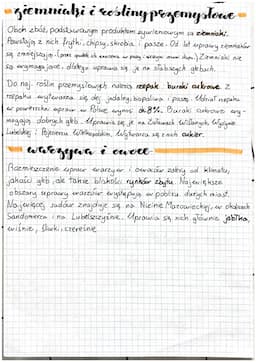 ziemniaki i rośliny przemysłowe
Obok zbóż, podstawowym produktem żywieniowym są ziemniaki.
Powstają z nich frytki, chipsy, skrobia i pasze. Od lat uprawy ziemniaków
są zmniejszają Ziemniaki nie
są wymagające, dlatego uprawia się je na słabszych glebach.
Do naj. roślin przemysłowych należą rzepak i buraki cukrowe. Z
rzepaku wytwarza się olej jadalny, biopaliwa i paszę. Udział rzepaku
w powierzchni upraw w Polsce wynosi ok. 8%. Buraki cukrowe wy-
magają dobrych gleb. Uprawia się je na Żuławach Wiślanych, Wyżynie
Lubelskiej i Pojezierzu Wielkopolskim. Wytwarza się z nich cukier.
warzywa i owoce
Rozmieszczenie upraw warzyw i owoców zależy od klimatu,
jakości gleb, ale także bliskości rynków zbytu. Największe
obszary uprawy warzyw występują w pobliżu dużych miast.
Najwięcej sadów znajduje się na Nizinie Mazowieckiej, w okolicach
Sandomierza i na Lubelszczyźnie. Uprawia się tam głównie jabłka,
wiśnie, śliwki, czereśnie.